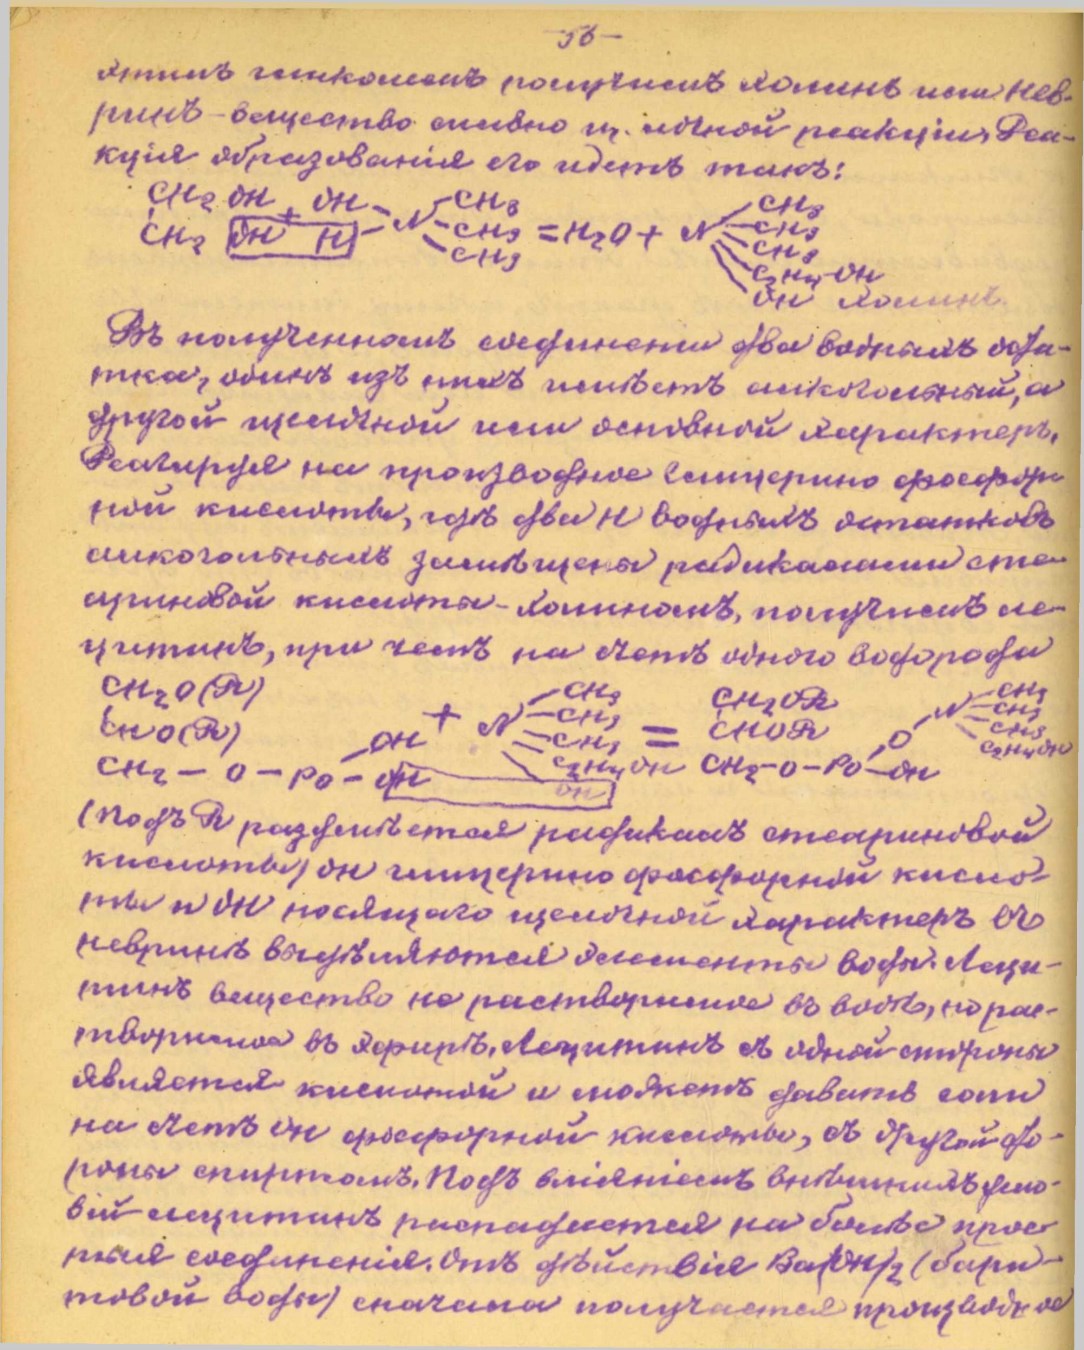 -56-
этимъ гликолемъ получимъ холинъ или нев-
ринъ - вещество сильно щелочной реакціи, Реа-
кція образованія его идетъ такъ:
CH2 OH + OH - N - CH3
CH2 OH H - CH3 = H2O + N - CH3
CH3 CH3
CH3
C2H4-OH
OH Холинъ.
Въ полученномъ соединеніи два водныхъ оста-
тка, одинъ изъ нихъ имѣетъ алкогольный, а
другой щелочной или основной характеръ.
Реагируя на производное глицерино фосфор
ной кислоты, гдѣ два H водныхъ остатковъ
алкогольныхъ замѣщены радикалами сте
ариновой кислоты - холиномъ, получимъ ле-
цитинъ, при чемъ на счетъ одного водорода
CH2O(R) CH3 CH2OR CH3
CHO(R) OH + N - CH3 = CHOR O N - CH3
CH3 CH3
CH2 - O - PO - OH C2H4OH CH2-O-PO-OH C2H4OH
OH
(Подъ R разумѣется радикалъ стеариновой
кислоты) OH глицерино фосфорной кисло-
ты и OH носящаго щелочной характеръ въ
невринѣ выдѣляются элементы воды. Леци-
тинъ вещество не растворимое въ водѣ, но рас-
творимое въ эфирѣ. Лецитинъ съ одной стороны
является кислотой и можетъ давать соли
на счетъ OH фосфорной кислоты, съ другой сто-
роны спиртомъ. Подъ вліяніемъ внѣшнихъ усло-
вій лецитинъ распадается на болѣе прос
тыя соединенія. Отъ дѣйствія Ba(OH)2 (бари-
товой воды) сначала получается производное